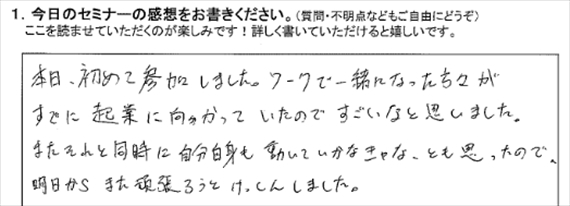 1. 今日のセミナーの感想をお書きください。(質問・不明点などもご自由にどうぞ)
ここを読ませていただくのが楽しみです！詳しく書いていただけると嬉しいです。
本日、初めて参加しました。ワークで一緒になった方々が
すでに起業に向かっていたのですごいなと思いました。
またそれと同時に自分自身も動いていかなきゃな、とも思ったので、
明日からまた頑張ろうとけっしんしました。